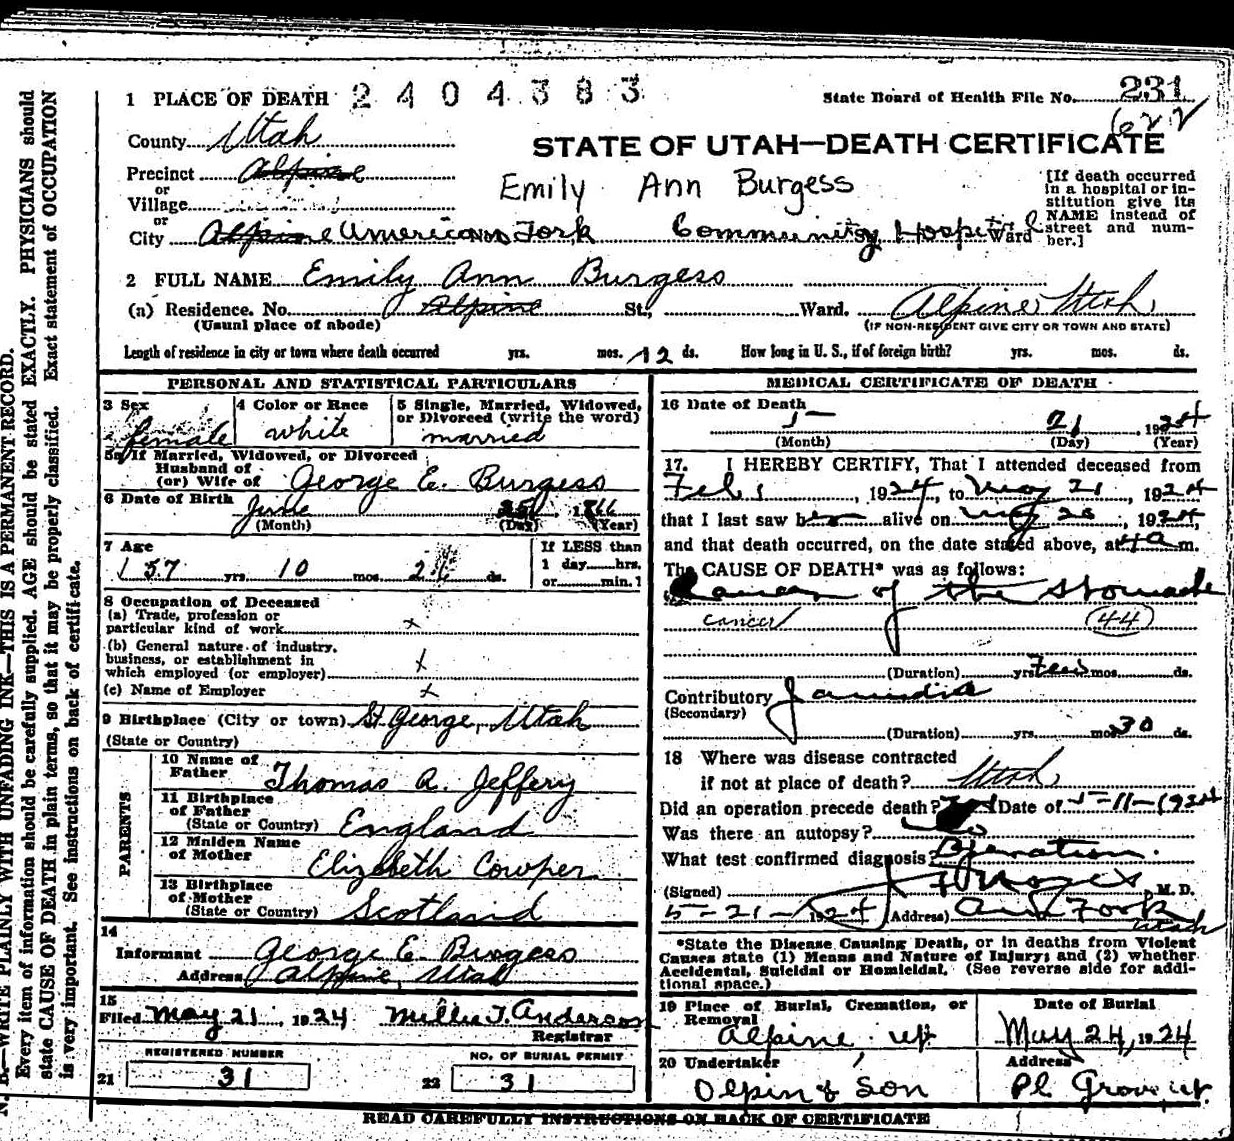 1 PLACE OF DEATH 2404383
State Board of Health File No. 231
622
County Utah
STATE OF UTAH—DEATH CERTIFICATE
Precinct Alpine
or
Village
or
Emily Ann Burgess
[If death occurred
in a hospital or in-
stitution give its
NAME instead of
street and num-
ber.]
City Alpine American Fork Community Hospital Ward
2 FULL NAME Emily Ann Burgess
(a) Residence. No. Alpine St., Ward. Alpine Utah
(Usual place of abode) (IF NON-RESIDENT GIVE CITY OR TOWN AND STATE)
Length of residence in city or town where death occurred yrs. mos. 12 ds. How long in U. S., if of foreign birth? yrs. mos. ds.
PERSONAL AND STATISTICAL PARTICULARS
3 Sex female
4 Color or Race white
5 Single, Married, Widowed,
or Divorced (write the word)
married
5a If Married, Widowed, or Divorced
Husband of
(or) Wife of George E. Burgess
6 Date of Birth June 25 1866
(Month) (Day) (Year)
7 Age 57 yrs. 10 mos. ds.
If LESS than
1 day hrs.
or min.
8 Occupation of Deceased
(a) Trade, profession or
particular kind of work x
(b) General nature of industry,
business, or establishment in
which employed (or employer) x
(c) Name of Employer x
9 Birthplace (City or town) St George, Utah
(State or Country)
PARENTS
10 Name of
Father Thomas R. Jeffery
11 Birthplace
of Father
(State or Country) England
12 Maiden Name
of Mother Elizabeth Cowper
13 Birthplace
of Mother
(State or Country) Scotland
14
Informant George E. Burgess
Address Alpine, Utah
15
Filed May 21, 1924 Millie T. Anderson
Registrar
REGISTERED NUMBER
21 31
NO. OF BURIAL PERMIT
22 31
MEDICAL CERTIFICATE OF DEATH
16 Date of Death
5 21, 1924
(Month) (Day) (Year)
17. I HEREBY CERTIFY, That I attended deceased from
Feb 1, 1924, to May 21, 1924
that I last saw her alive on May 20, 1924,
and that death occurred, on the date stated above, at 4 a m.
The CAUSE OF DEATH* was as follows:
Cancer of the Stomach
cancer (44)
(Duration) yrs. mos. ds.
Contributory Jaundice
(Secondary)
(Duration) yrs. mos. 30 ds.
18 Where was disease contracted
if not at place of death? Utah
Did an operation precede death? Yes Date of 5-11-1924
Was there an autopsy? No
What test confirmed diagnosis? Operation.
(Signed) M. D.
5-21-1924 (Address) Am Fork Utah
*State the Disease Causing Death, or in deaths from Violent
Causes state (1) Means and Nature of Injury; and (2) whether
Accidental, Suicidal or Homicidal. (See reverse side for addi-
tional space.)
19 Place of Burial, Cremation, or
Removal
Alpine, Ut
Date of Burial
May 24, 1924
20 Undertaker
Olpin & Son
Address
Pl Grove, Ut.
READ CAREFULLY INSTRUCTIONS ON BACK OF CERTIFICATE
N. B.—WRITE PLAINLY WITH UNFADING INK—THIS IS A PERMANENT RECORD.
Every item of information should be carefully supplied. AGE should be stated EXACTLY. PHYSICIANS should
state CAUSE OF DEATH in plain terms, so that it may be properly classified. Exact statement of OCCUPATION
is very important. See instructions on back of certificate.